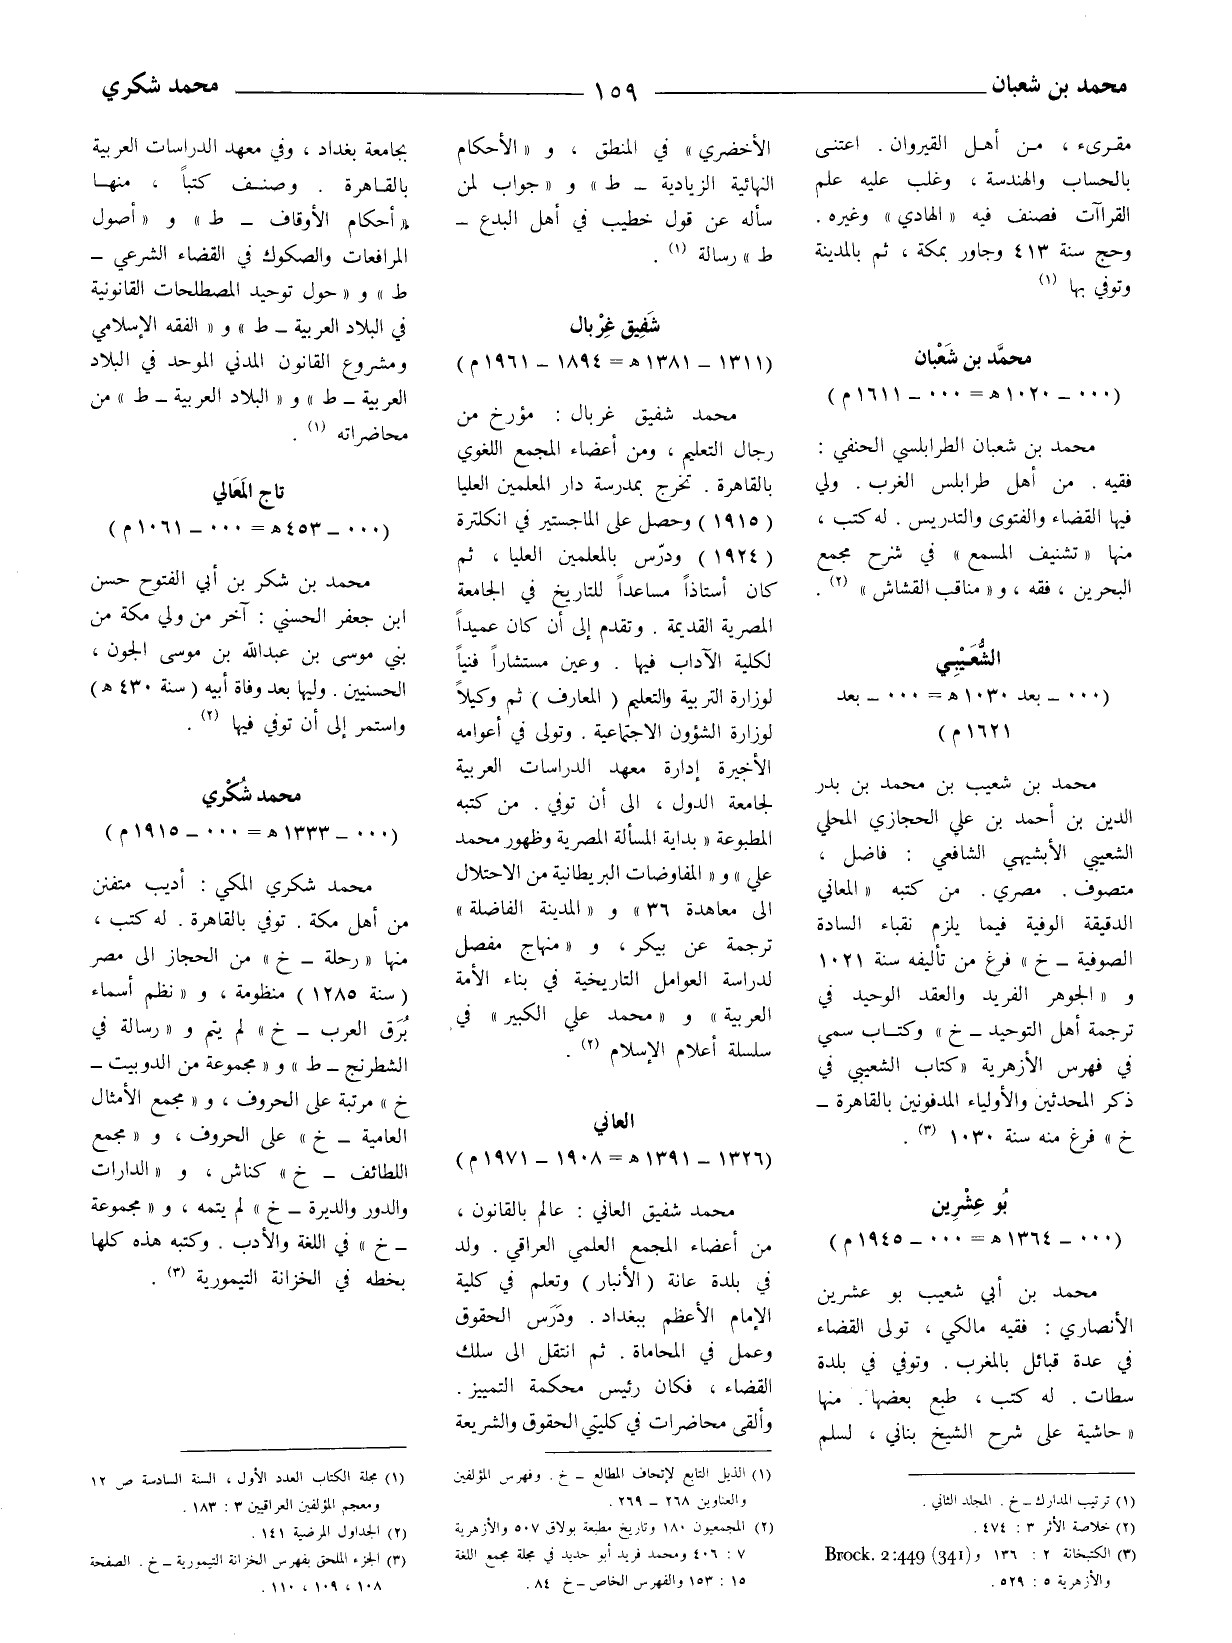 محمد بن شعبان ١٥٩ محمد شكري
مقرىء ، من أهل القيروان . اعتنى
بالحساب والهندسة ، وغلب عليه علم
القراآت فصنف فيه « الهادي » وغيره .
وحج سنة ٤١٣ وجاور بمكة ، ثم بالمدينة
وتوفي بها (١)
محمَّد بن شَعْبان
(٠٠٠ ـ ١٠٢٠ ه = ٠٠٠ ـ ١٦١١ م)
محمد بن شعبان الطرابلسي الحنفي :
فقيه . من أهل طرابلس الغرب . ولي
فيها القضاء والفتوى والتدريس . له كتب ،
منها « تشنيف المسمع » في شرح مجمع
البحرين ، فقه ، و « مناقب القشاش » (٢) .
الشُّعَيْبِي
(٠٠٠ ـ بعد ١٠٣٠ ه = ٠٠٠ ـ بعد
١٦٢١ م)
محمد بن شعيب بن محمد بن بدر
الدين بن أحمد بن علي الحجازي المحلي
الشعيبي الأبشيهي الشافعي : فاضل ،
متصوف . مصري . من كتبه « المعاني
الدقيقة الوفية فيما يلزم نقباء السادة
الصوفية ـ خ » فرغ من تأليفه سنة ١٠٢١
و « الجوهر الفريد والعقد الوحيد في
ترجمة أهل التوحيد ـ خ » وكتاب سمي
في فهرس الأزهرية « كتاب الشعيبي في
ذكر المحدثين والأولياء المدفونين بالقاهرة ـ
خ » فرغ منه سنة ١٠٣٠ (٣) .
بُو عِشْرِين
(٠٠٠ ـ ١٣٦٤ ه = ٠٠٠ ـ ١٩٤٥ م)
محمد بن أبي شعيب بو عشرين
الأنصاري : فقيه مالكي ، تولى القضاء
في عدة قبائل بالمغرب . وتوفي في بلدة
سطات . له كتب ، طبع بعضها . منها
« حاشية على شرح الشيخ بناني ، لسلم
(١) ترتيب المدارك ـ خ . المجلد الثاني .
(٢) خلاصة الأثر ٣ : ٤٧٤ .
(٣) الكتبخانة ٢ : ١٣٦ و Brock. 2:449 (341)
والأزهرية ٥ : ٥٢٩ .
الأخضري » في المنطق ، و « الأحكام
النهائية الزيادية ـ ط » و « جواب لمن
سأله عن قول خطيب في أهل البدع ـ
ط » رسالة (١) .
شَفِيق غِرْبال
(١٣١١ ـ ١٣٨١ ه = ١٨٩٤ ـ ١٩٦١ م)
محمد شفيق غربال : مؤرخ من
رجال التعليم ، ومن أعضاء المجمع اللغوي
بالقاهرة . تخرج بمدرسة دار المعلمين العليا
( ١٩١٥ ) وحصل على الماجستير في انكلترة
( ١٩٢٤ ) ودرّس بالمعلمين العليا ، ثم
كان أستاذاً مساعداً للتاريخ في الجامعة
المصرية القديمة . وتقدم إلى أن كان عميداً
لكلية الآداب فيها . وعين مستشاراً فنياً
لوزارة التربية والتعليم ( المعارف ) ثم وكيلاً
لوزارة الشؤون الاجتماعية . وتولى في أعوامه
الأخيرة إدارة معهد الدراسات العربية
لجامعة الدول ، الى أن توفي . من كتبه
المطبوعة « بداية المسألة المصرية وظهور محمد
علي » و « المفاوضات البريطانية من الاحتلال
الى معاهدة ٣٦ » و « المدينة الفاضلة »
ترجمة عن بيكر ، و « منهاج مفصل
لدراسة العوامل التاريخية في بناء الأمة
العربية » و « محمد علي الكبير » في
سلسلة أعلام الإسلام (٢) .
العاني
(١٣٢٦ ـ ١٣٩١ ه = ١٩٠٨ ـ ١٩٧١ م)
محمد شفيق العاني : عالم بالقانون ،
من أعضاء المجمع العلمي العراقي . ولد
في بلدة عانة ( الأنبار ) وتعلم في كلية
الإمام الأعظم ببغداد . ودَرَس الحقوق
وعمل في المحاماة . ثم انتقل الى سلك
القضاء ، فكان رئيس محكمة التمييز .
وألقى محاضرات في كليتي الحقوق والشريعة
(١) الذيل التابع لإتحاف المطالع ـ خ . وفهرس المؤلفين
والعناوين ٢٦٨ ـ ٢٦٩ .
(٢) المجمعيون ١٨٠ وتاريخ مطبعة بولاق ٥٠٧ والأزهرية
٧ : ٤٠٦ ومحمد فريد أبو حديد في مجلة مجمع اللغة
١٥ : ١٥٣ والفهرس الخاص ـ خ ٨٤ .
بجامعة بغداد ، وفي معهد الدراسات العربية
بالقاهرة . وصنف كتباً ، منها
« أحكام الأوقاف ـ ط » و « أصول
المرافعات والصكوك في القضاء الشرعي ـ
ط » و « حول توحيد المصطلحات القانونية
في البلاد العربية ـ ط » و « الفقه الإسلامي
ومشروع القانون المدني الموحد في البلاد
العربية ـ ط » و « البلاد العربية ـ ط » من
محاضراته (١) .
تاج المَعَالي
(٠٠٠ ـ ٤٥٣ ه = ٠٠٠ ـ ١٠٦١ م)
محمد بن شكر بن أبي الفتوح حسن
ابن جعفر الحسني : آخر من ولي مكة من
بني موسى بن عبدالله بن موسى الجون ،
الحسنيين . وليها بعد وفاة أبيه ( سنة ٤٣٠ ه )
واستمر إلى أن توفي فيها (٢) .
محمد شُكْري
(٠٠٠ ـ ١٣٣٣ ه = ٠٠٠ ـ ١٩١٥ م)
محمد شكري المكي : أديب متفنن
من أهل مكة . توفي بالقاهرة . له كتب ،
منها « رحلة ـ خ » من الحجاز الى مصر
( سنة ١٢٨٥ ) منظومة ، و « نظم أسماء
بُرَق العرب ـ خ » لم يتم و « رسالة في
الشطرنج ـ ط » و « مجموعة من الدوبيت ـ
خ » مرتبة على الحروف ، و « مجمع الأمثال
العامية ـ خ » على الحروف ، و « مجمع
اللطائف ـ خ » كناش ، و « الدارات
والدور والديرة ـ خ » لم يتمه ، و « مجموعة
ـ خ » في اللغة والأدب . وكتبه هذه كلها
بخطه في الخزانة التيمورية (٣) .
(١) مجلة الكتاب العدد الأول ، السنة السادسة ص ١٢
ومعجم المؤلفين العراقيين ٣ : ١٨٣ .
(٢) الجداول المرضية ١٤١ .
(٣) الجزء الملحق بفهرس الخزانة التيمورية ـ خ . الصفحة
١٠٨ ، ١٠٩ ، ١١٠ .